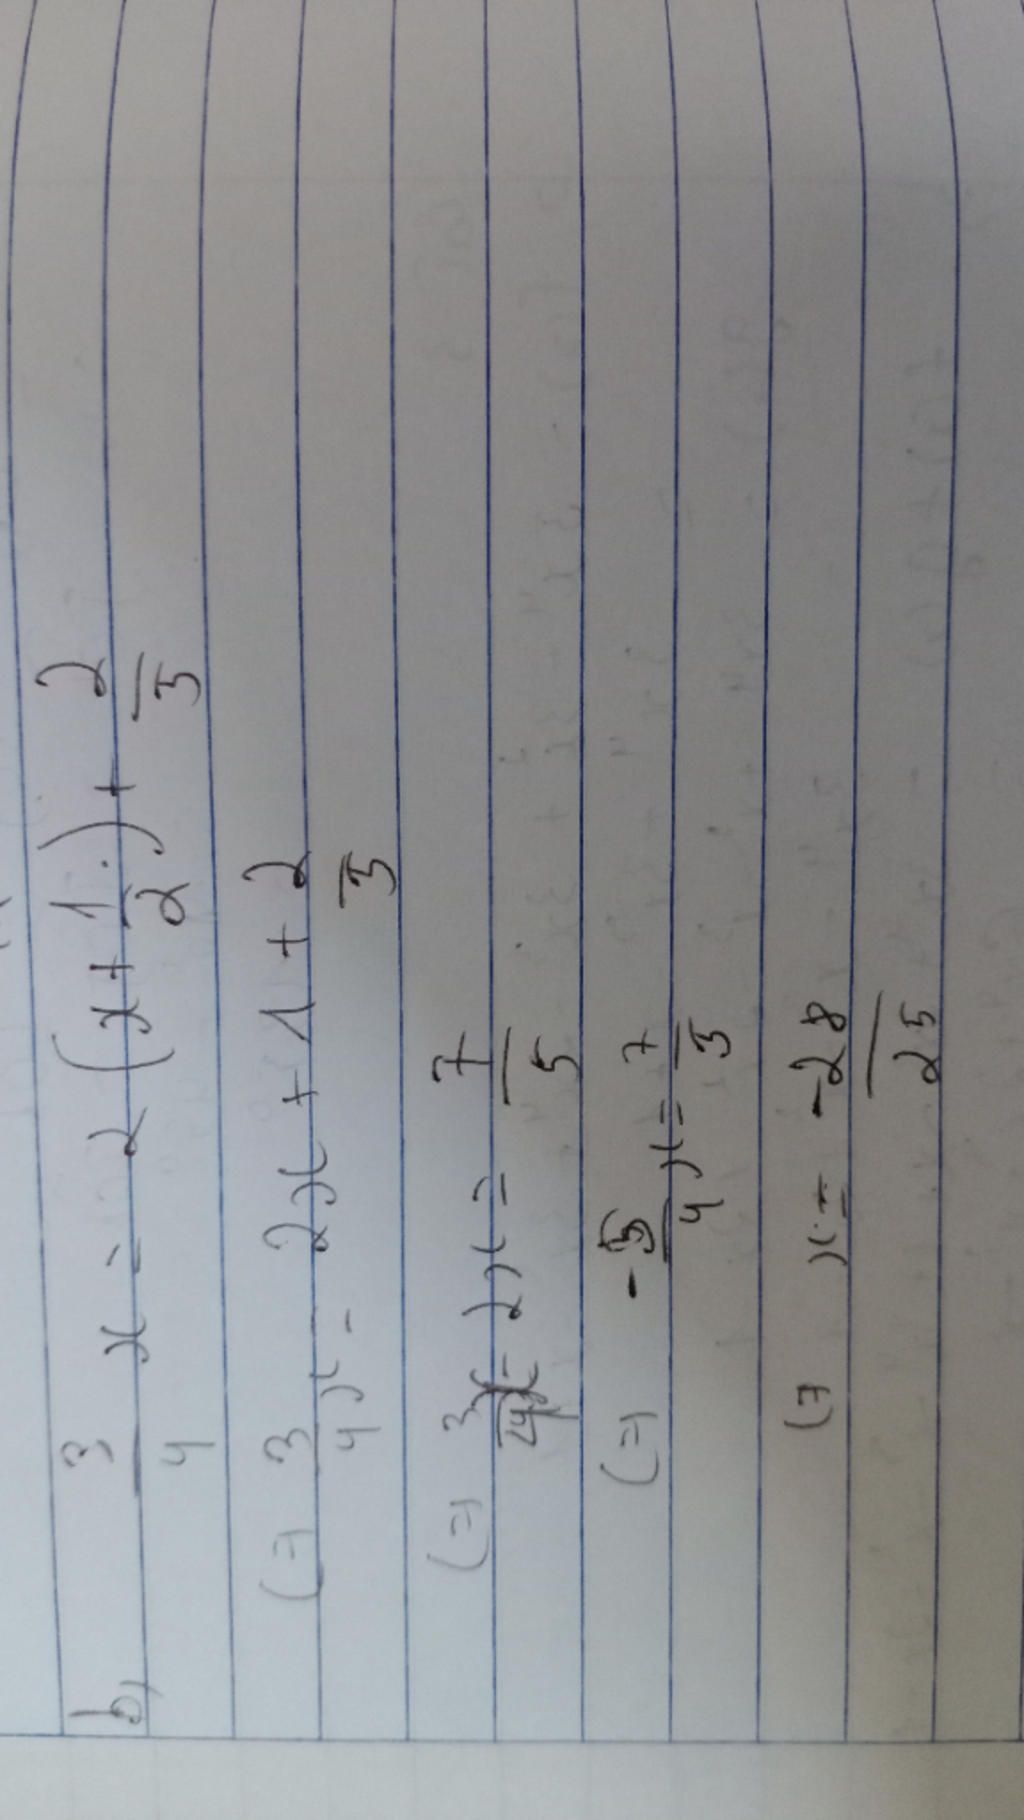 b, 3/4 x = 2 (x + 1/2) + 2/3
(=) 3/4 x = 2x + 1 + 2/3
(=) 3/4 x - 2x = 7/5
(=) -5/4 x = 7/3
(=) x = -28/25